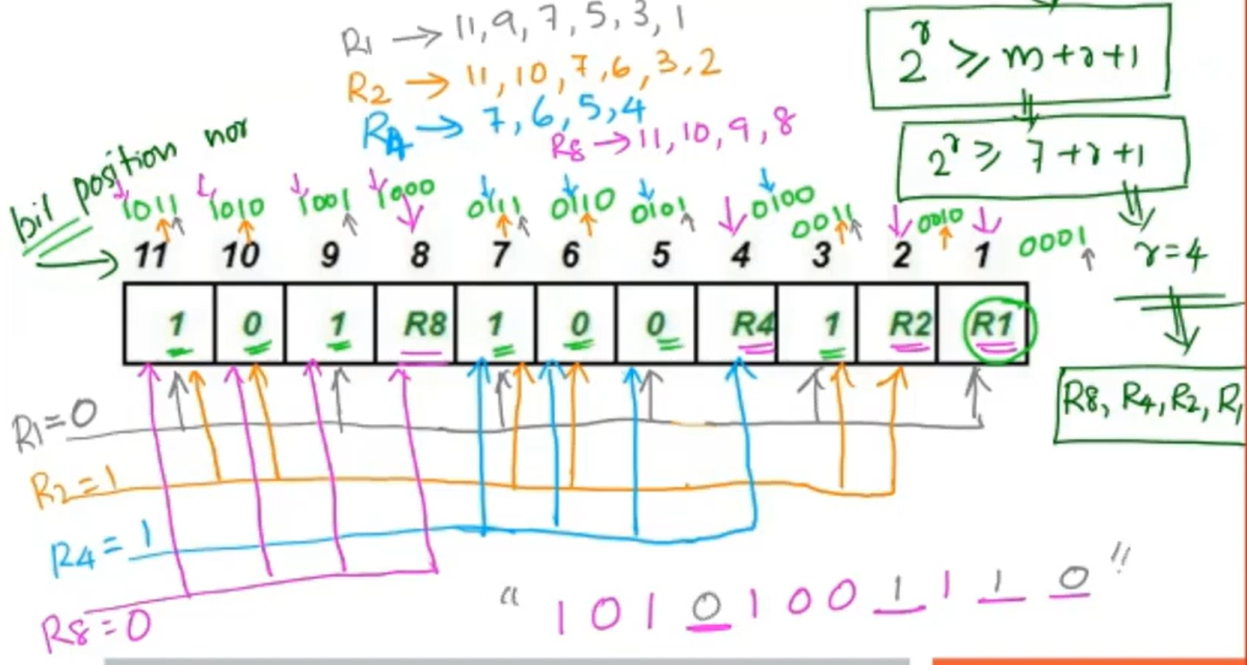 R1 → 11, 9, 7, 5, 3, 1
R2 → 11, 10, 7, 6, 3, 2
R4 → 7, 6, 5, 4
R8 → 11, 10, 9, 8
2^r ≥ m+r+1
2^r ≥ 7+r+1
r=4
R8, R4, R2, R1
bit position nor
1011 1010 1001 1000 0111 0110 0101 0100 0011 0010 0001
11 10 9 8 7 6 5 4 3 2 1
1 0 1 R8 1 0 0 R4 1 R2 R1
R1=0
R2=1
R4=1
R8=0
“ 1 0 1 0 1 0 0 1 1 1 0 ”